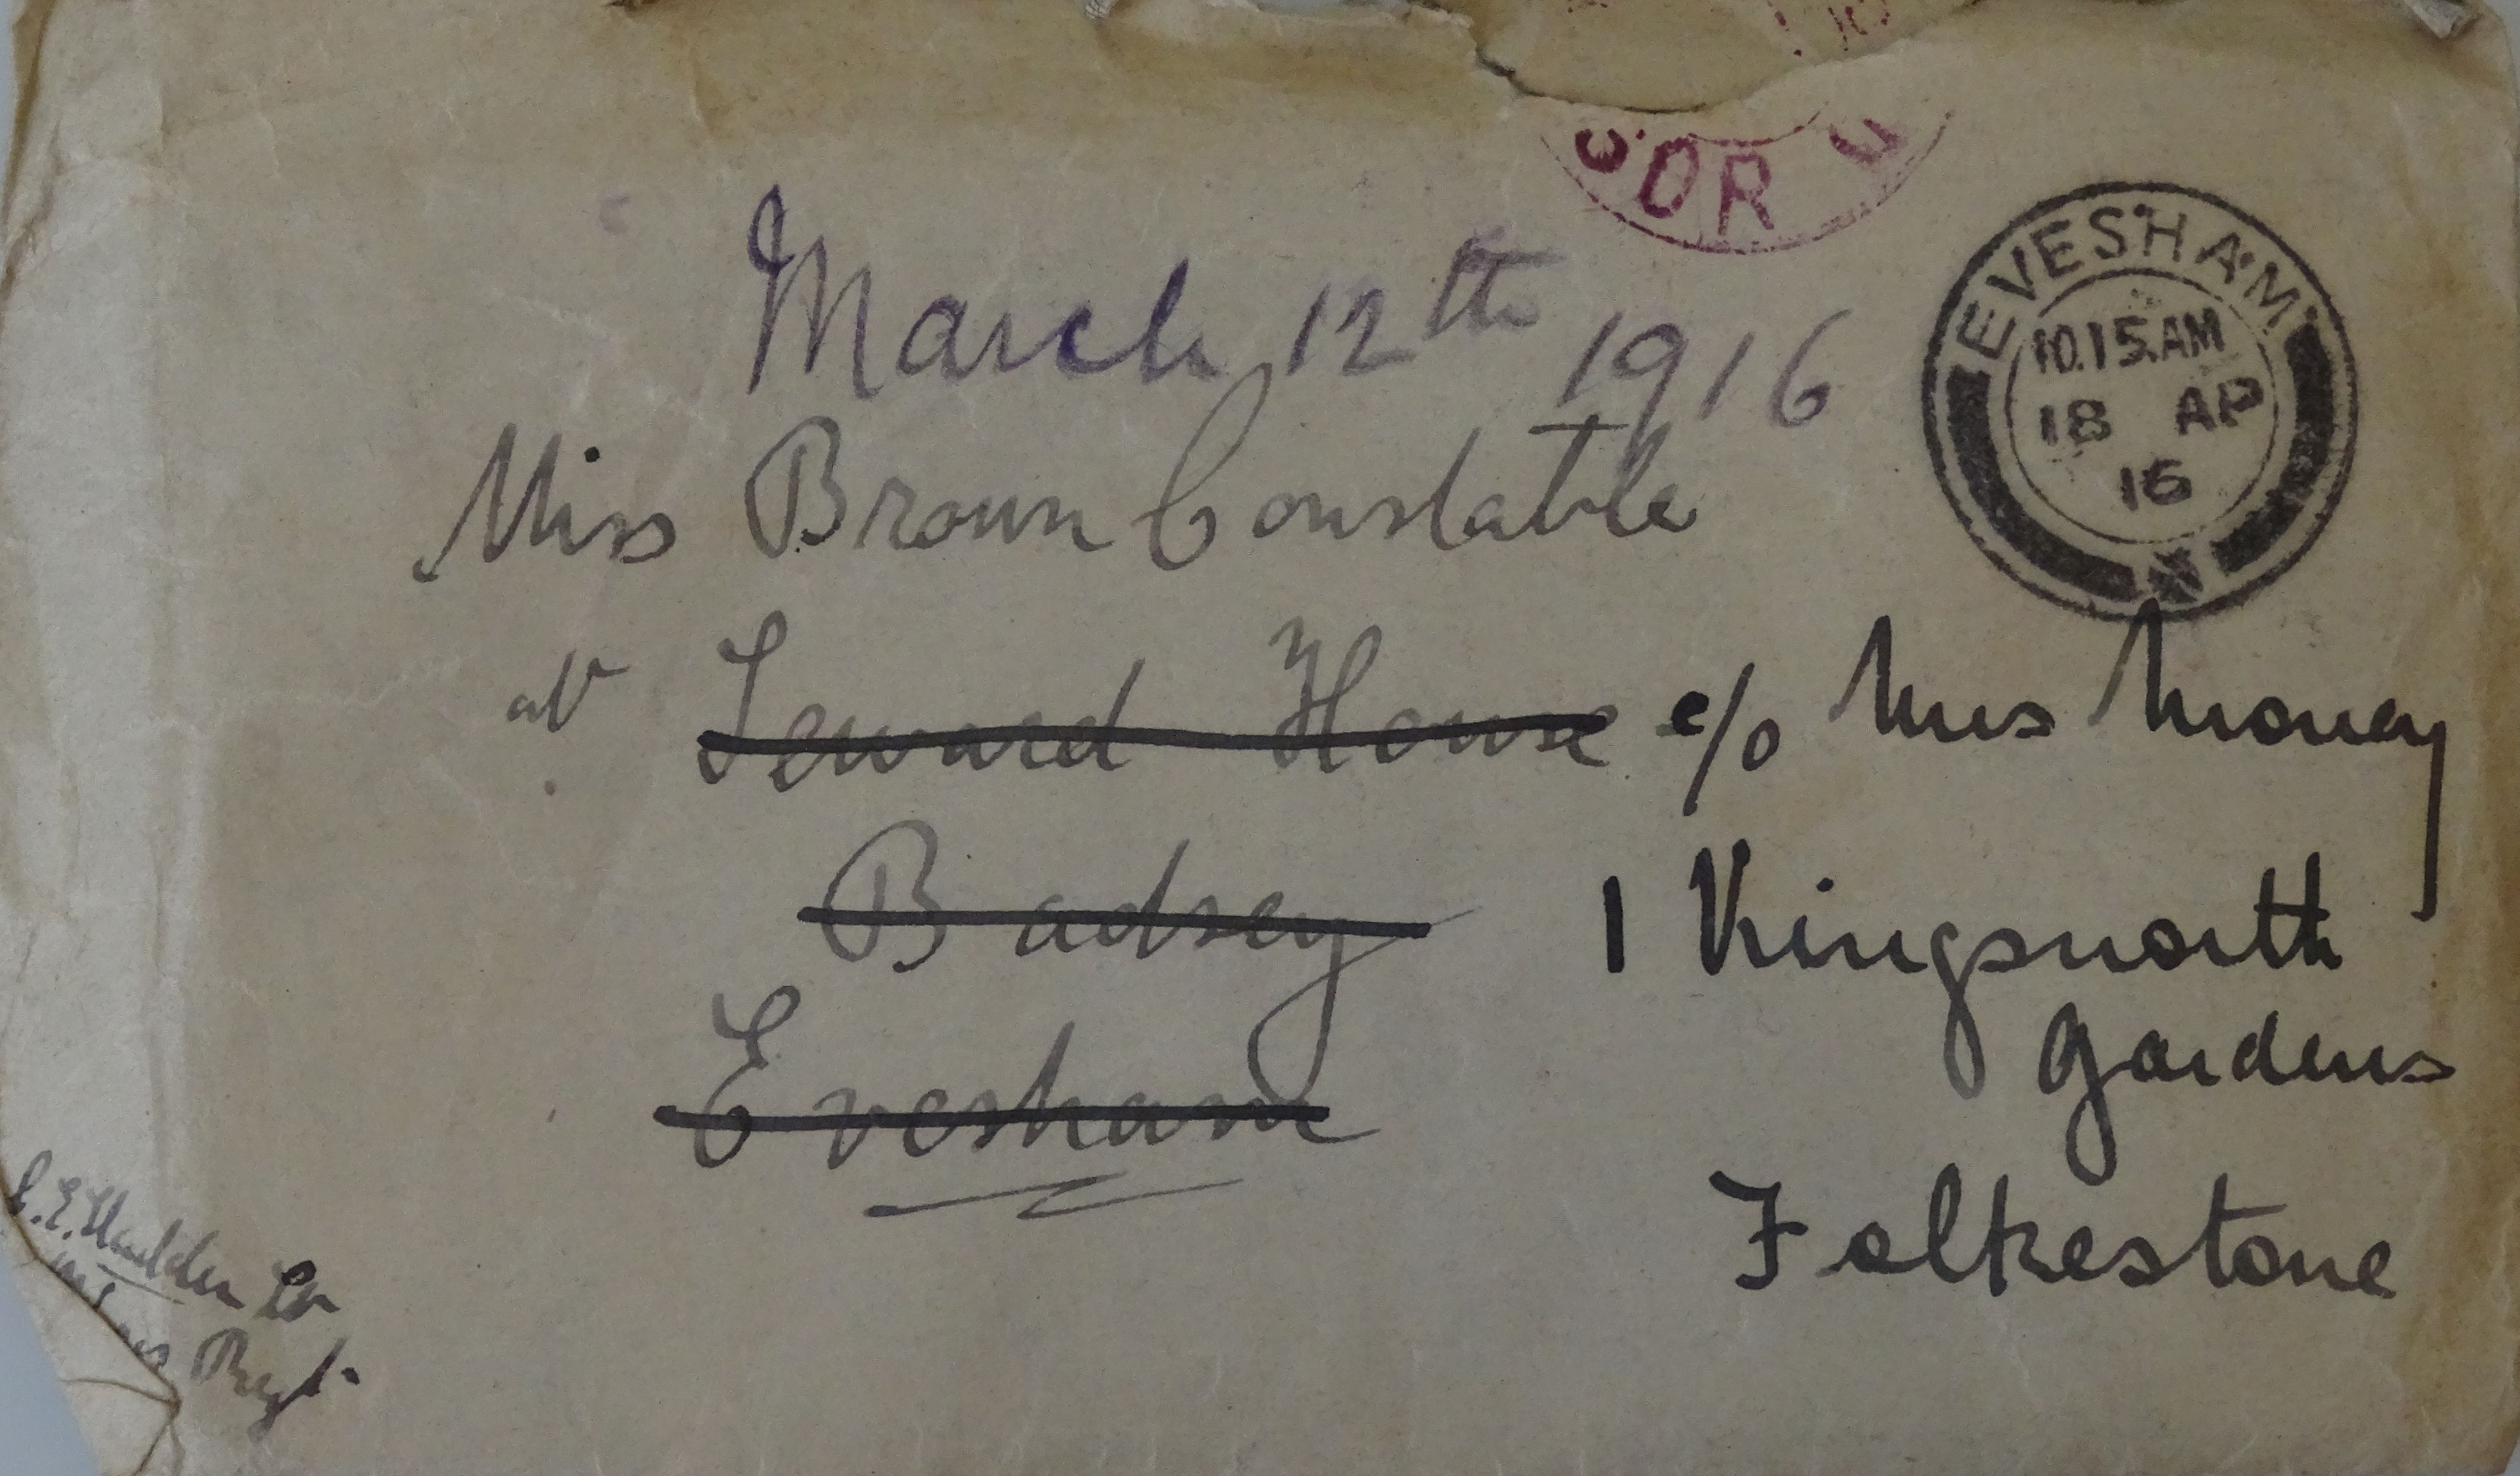 March 12th 1916
EVESHAM
10.15.AM
18 AP
16
Miss Brown Constable
at Seward House c/o Mrs Money
Badsey 1 Kingsnorth
Gardens
Evesham
Folkestone
Regt.